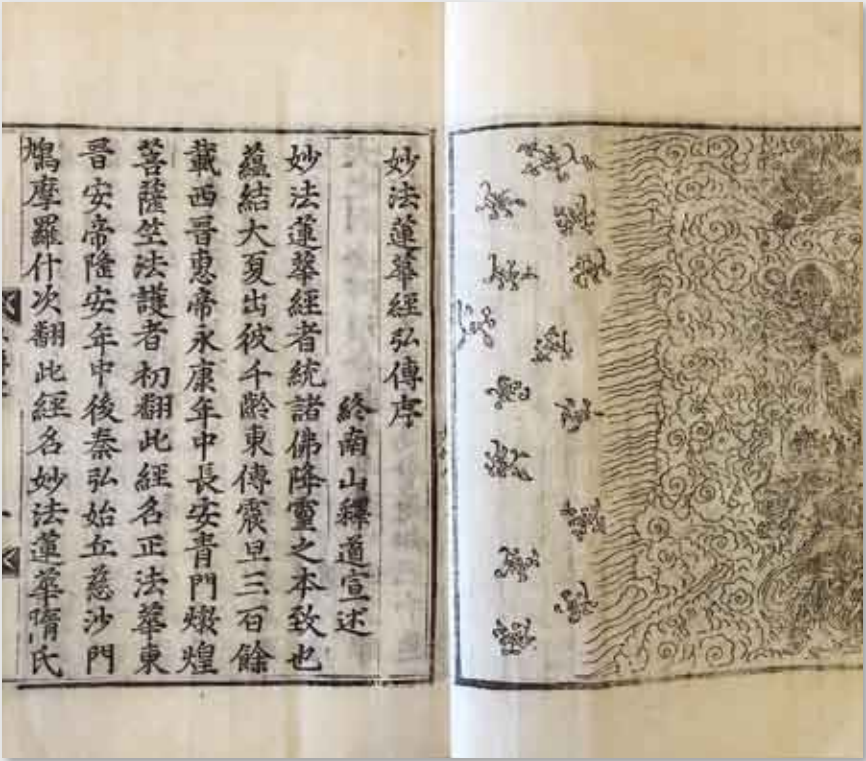 妙法蓮華經弘傳序
終南山釋道宣述
妙法蓮華經者統諸佛降靈之本致也
蘊結大夏出彼千齡東傳震旦三百餘
載西晉惠帝永康年中長安青門燉煌
菩薩竺法護者初翻此經名正法華東
晉安帝隆安年中後秦弘始五慈沙門
鳩摩羅什次翻此經名妙法蓮華隋氏